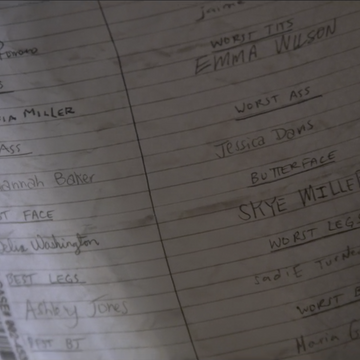 MILLER
ASS
Hannah Baker
FACE
Washington
BEST LEGS
Ashley Jones
BEST BJ
WORST TITS
EMMA WILSON
WORST ASS
Jessica Davis
BUTTERFACE
SKYE MILLER
WORST LEGS
Sadie Turn
WORST B
Maria G